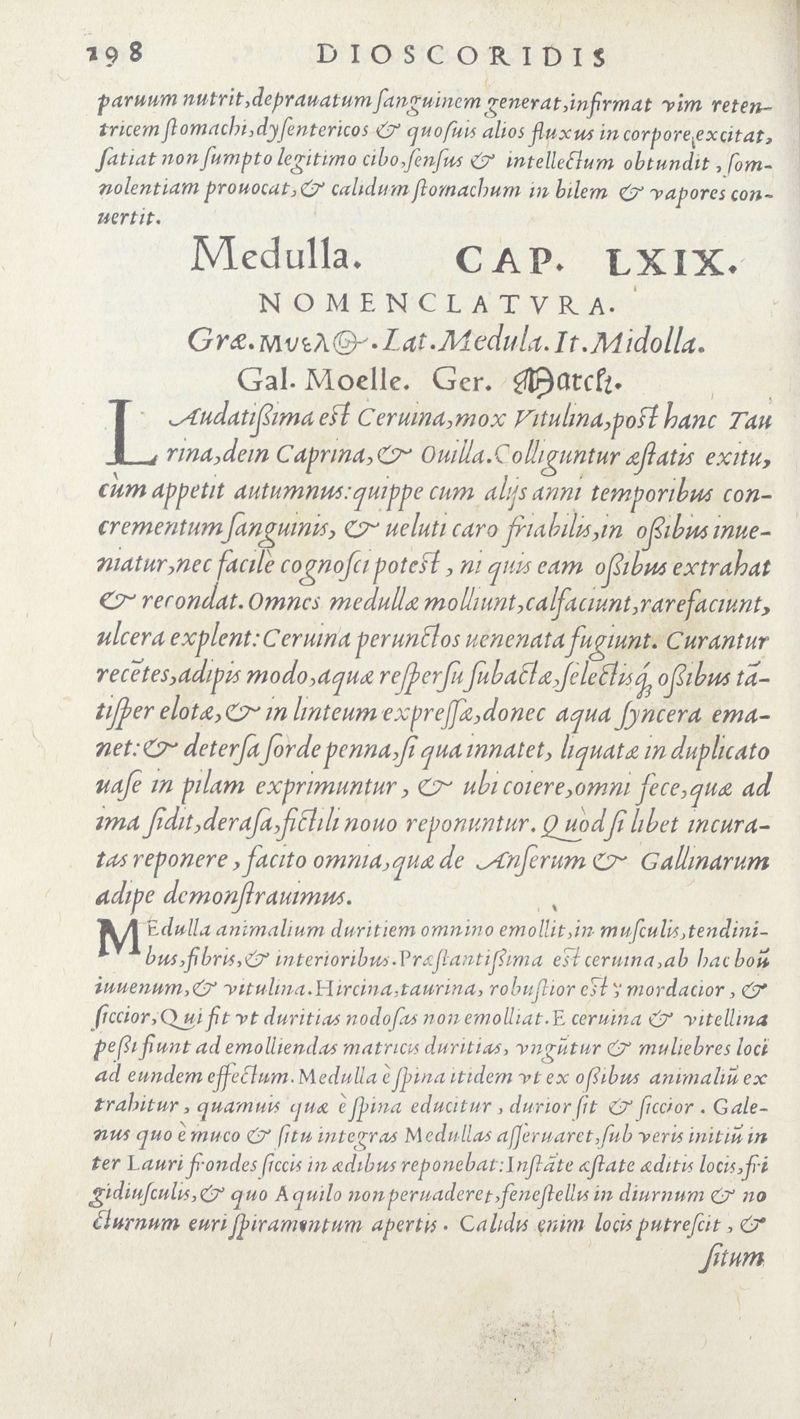 198 DIOSCORIDIS
paruum nutrit, deprauatum ſanguinem generat, infirmat vim reten-
tricem ſtomachi, dyſentericos & quoſuis alios fluxus in corpore, excitat,
ſatiat non ſumpto legitimo cibo, ſenſus & intellectum obtundit, ſom-
nolentiam prouocat, & calidum ſtomachum in bilem & vapores con-
uertit.
Medulla. CAP. LXIX.
NOMENCLATVRA.
Græ. Μυελὸς. Lat. Medula. It. Midolla.
Gal. Moelle. Ger. March.
LAudatißima eſt Ceruina, mox Vitulina, poſt hanc Tau
rina, dein Caprina, & Ouilla. Colliguntur æſtatis exitu,
cùm appetit autumnus: quippe cum alijs anni temporibus con-
crementum ſanguinis, & ueluti caro friabilis, in oßibus inue-
niatur, nec facilè cognoſci poteſt, ni quis eam oßibus extrahat
& recondat. Omnes medullæ molliunt, calfaciunt, rarefaciunt,
ulcera explent: Ceruina perunctos uenenata fugiunt. Curantur
recētes, adipis modo, aquæ reſperſu ſubactæ, ſelectisq́; oßibus tā-
tiſper elotæ, & in linteum expreſſæ, donec aqua ſyncera ema-
net: & deterſa ſorde penna, ſi qua innatet, liquatæ in duplicato
uaſe in pilam exprimuntur, & ubi coiere, omni fece, quæ ad
ima ſidit, deraſa, fictili nouo reponuntur. Quòd ſi libet incura-
tas reponere, facito omnia, quæ de Anſerum & Gallinarum
adipe demonſtrauimus.
MEdulla animalium duritiem omnino emollit, in muſculis, tendini-
bus, fibris, & interioribus. Præſtantißima eſt ceruina, ab hac boū
iuuenum, & vitulina. Hircina, taurina, robuſtior eſt, mordacior, &
ſiccior, Qui fit vt duritias nodoſas non emolliat. E ceruina & vitellina
peßi fiunt ad emolliendas matricis duritias, vngūtur & muliebres loci
ad eundem effectum. Medulla è ſpina itidem vt ex oßibus animaliū ex
trahitur, quamuis quæ è ſpina educitur, durior ſit & ſiccior. Gale-
nus quo è muco & ſitu integras Medullas aſſeruaret, ſub veris initiū in
ter Lauri frondes ſiccis in ædibus reponebat: Inſtāte æſtate æditis locis, fri
gidiuſculis, & quo Aquilo non peruaderet, feneſtellis in diurnum & no
cturnum euri ſpiramentum apertis. Calidis enim locis putreſcit, &
ſitum